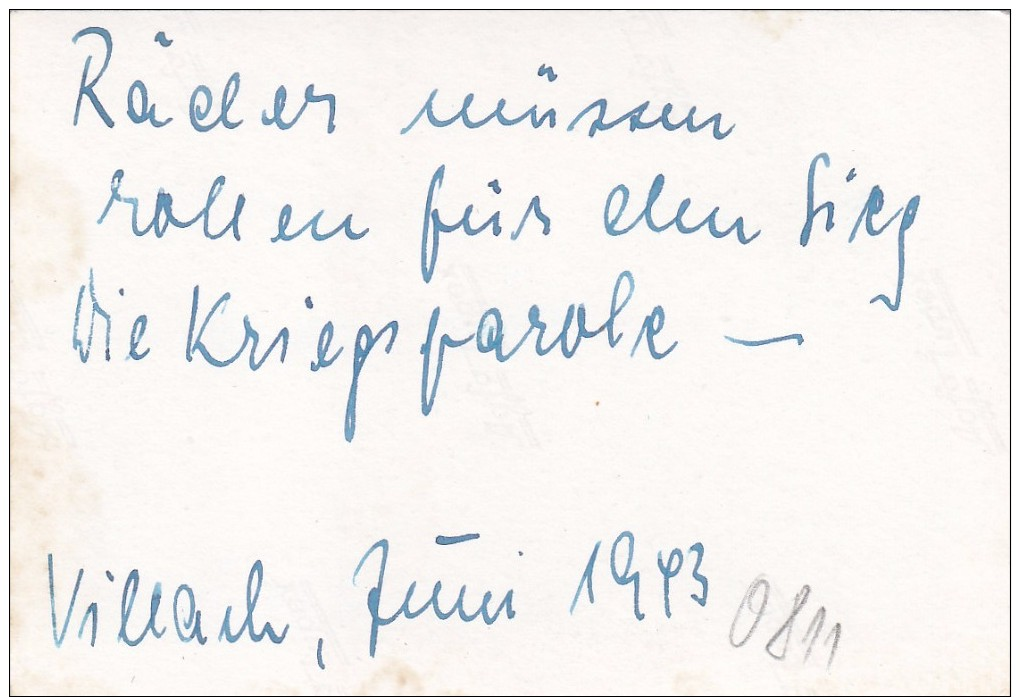 Räder müssen
rollen für den Sieg
Die Kriegsparole —
Villach, Juni 1943
0811